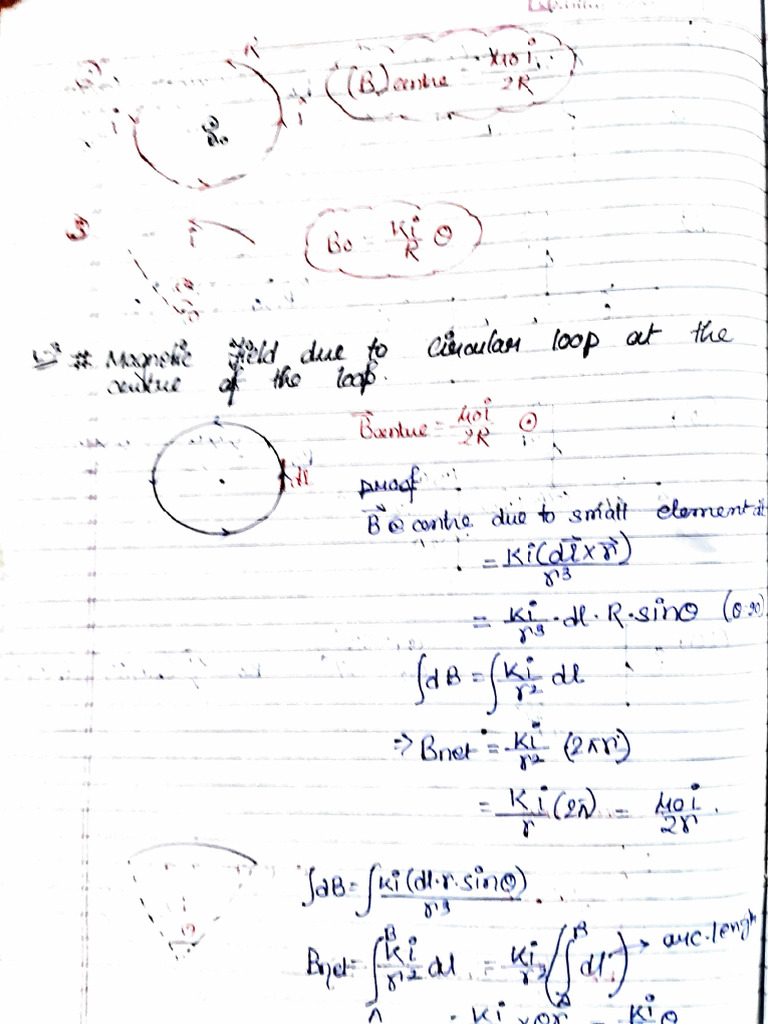 R
(B) centre = μ0 i / 2R
i
i
3
i
B0 = Ki/R θ
# Magnetic field due to circular loop at the
centre of the loop.
B⃗centre = μ0 i / 2R ⊙
dl
proof
B⃗ @ centre due to small element
= Ki(dl⃗ × r⃗) / r³
= Ki/r³ · dl · R · sinθ (θ=90)
∫dB = ∫ Ki/r² dl
⇒ Bnet = Ki/r² (2πr)
= Ki/r (2π) = μ0 i / 2r .
∫dB = ∫ Ki(dl·r·sinθ) / r³
Bnet = ∫_A^B Ki/r² dl = Ki/r² (∫_A^B dl) → arc length
= Ki × θr = Ki θ